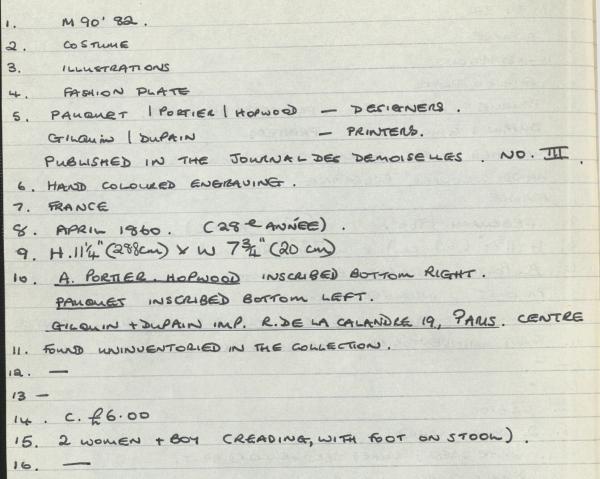 1. M 90' 82.
2. COSTUME
3. ILLUSTRATIONS
4. FASHION PLATE
5. PAUQUET | PORTIER | HOPWOOD — DESIGNERS.
GILQUIN | DUPAIN — PRINTERS.
PUBLISHED IN THE JOURNAL DES DEMOISELLES. NO. III.
6. HAND COLOURED ENGRAVING.
7. FRANCE
8. APRIL 1860. (28e ANNÉE).
9. H. 11¼" (28.8cm) X W 7¾" (20 cm)
10. A. PORTIER. HOPWOOD INSCRIBED BOTTOM RIGHT.
PAUQUET INSCRIBED BOTTOM LEFT.
GILQUIN + DUPAIN IMP. R. DE LA CALANDRE 19, PARIS. CENTRE
11. FOUND UNINVENTORIED IN THE COLLECTION.
12. —
13 —
14. C. £6.00
15. 2 WOMEN + BOY (READING, WITH FOOT ON STOOL).
16. —